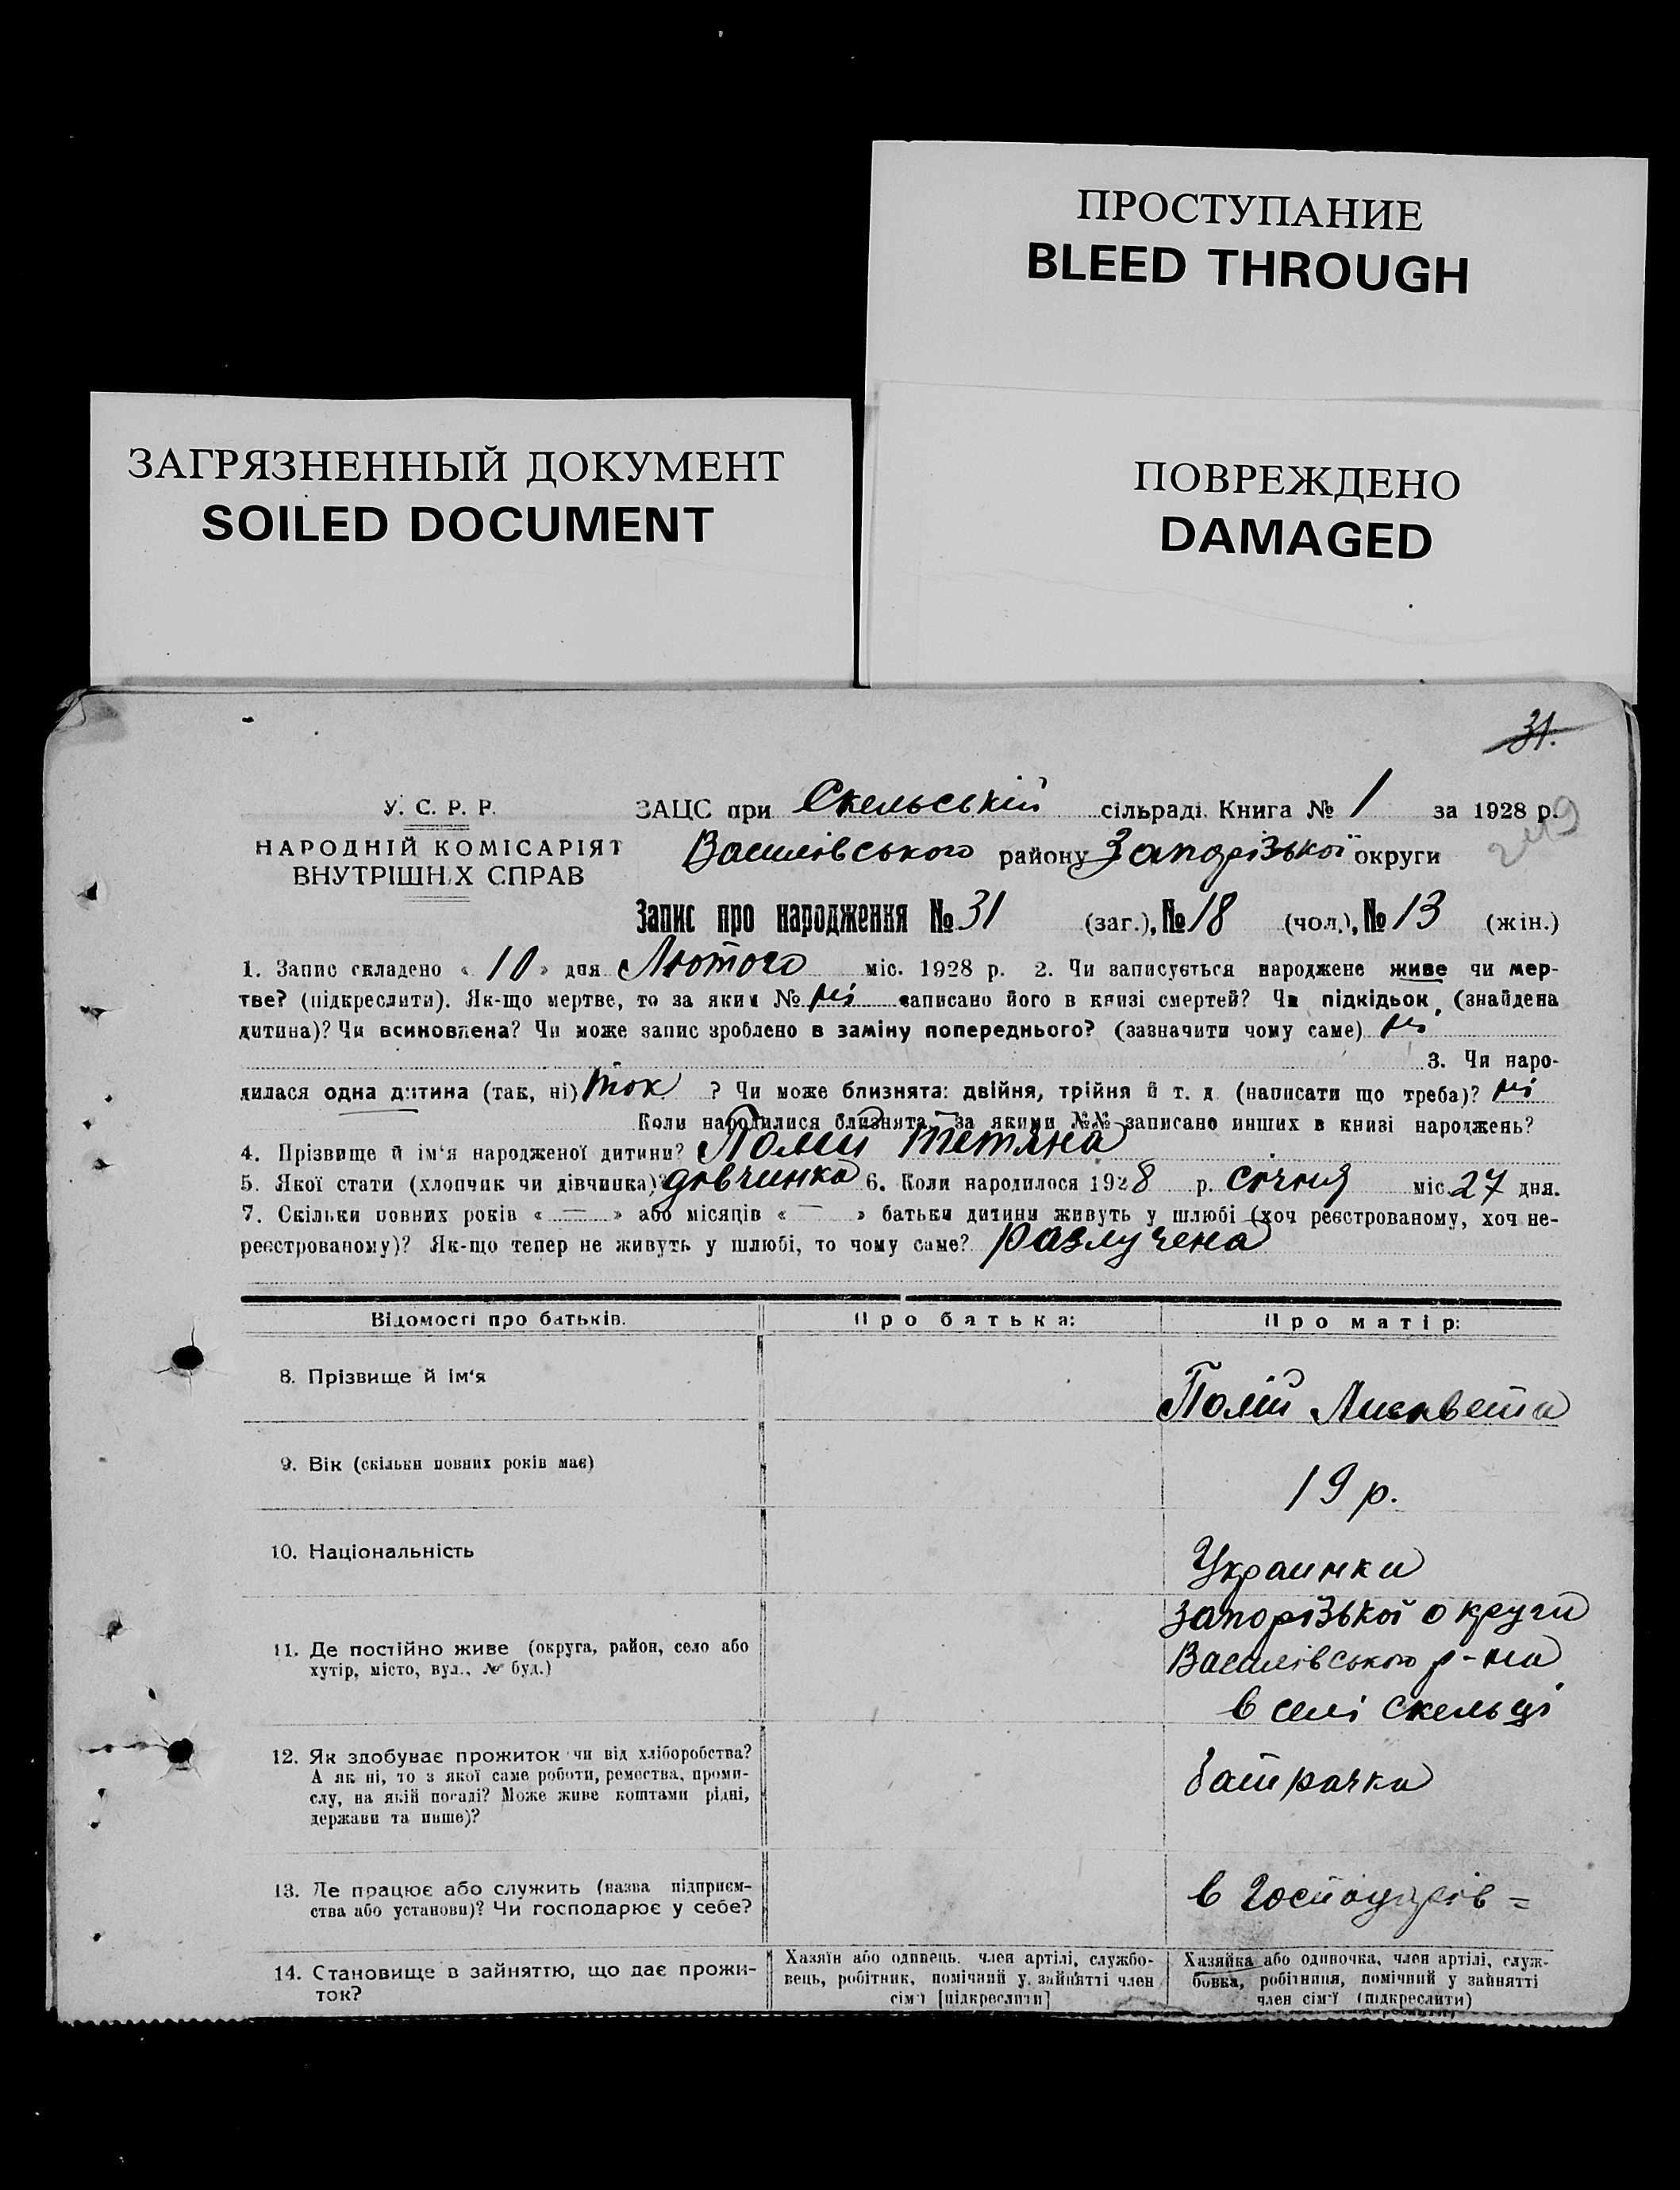 ПРОСТУПАНИЕ
BLEED THROUGH
ЗАГРЯЗНЕННЫЙ ДОКУМЕНТ
SOILED DOCUMENT
ПОВРЕЖДЕНО
DAMAGED
31.
У. С. Р. Р.
НАРОДНІЙ КОМІСАРІЯТ
ВНУТРІШНІХ СПРАВ
ЗАЦС при Скельській сільраді. Книга № 1 за 1928 р.
Василівського району Запорізької округи
Запис про народження № 31 (заг.), № 18 (чол.), № 13 (жін.)
1. Запис складено « 10 » дня Лютого міс. 1928 р. 2. Чи записується народжене живе чи мер-
тве? (підкреслити). Як-що мертве, то за яким № ні записано його в книзі смертей? Чи підкідьок, (знайдена
дитина)? Чи всиновлена? Чи може запис зроблено в заміну попереднього? (зазначити чому саме) ні
3. Чи наро-
дилася одна дитина (так, ні) так ? Чи може близнята: двійня, трійня й т. д. (написати що треба)? ні
Коли народилися близнята, за якими №№ записано инших в книзі народжень?
4. Прізвище й ім'я народженої дитини? Тетяна
5. Якої стати (хлопчик чи дівчинка)? дівчинка 6. Коли народилося 1928 р. січня міс. 27 дня.
7. Скільки повних років « — » або місяців « — » батьки дитини живуть у шлюбі (хоч реєстрованому, хоч не-
реєстрованому)? Як-що тепер не живуть у шлюбі, то чому саме? разлучена
Відомості про батьків.
Про батька:
Про матір:
8. Прізвище й ім'я
Лисавета
9. Вік (скільки повних років має)
19 р.
10. Національність
Украинка
11. Де постійно живе (округа, район, село або
хутір, місто, вул., № буд.)
Запорізької округи
Василівського р-на
в селі Скельці
12. Як здобуває прожиток чи від хліборобства?
А як ні, то з якої саме роботи, ремества, проми-
слу, на якій посаді? Може живе коштами рідні,
держави та инше)?
батрачка
13. Де працює або служить (назва підприєм-
ства або установи)? Чи господарює у себе?
в господарів =
14. Становище в зайняттю, що дає прожи-
ток?
Хазяїн або одинець, член артілі, службо-
вець, робітник, помічний у зайнятті член
сім'ї [підкреслити]
Хазяйка або одиночка, член артілі, служ-
бовка, робітниця, помічний у зайнятті
член сім'ї (підкреслити)